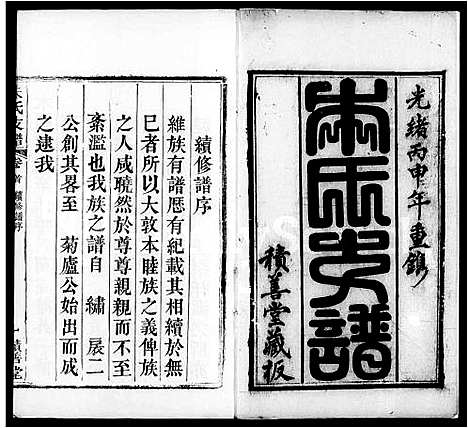 光緒丙申年重鐫
朱氏支譜
積善堂藏板
續修譜序
維族有譜厯有紀載其相續於無
已者所以大敦本睦族之義俾族
之人咸曉然於尊尊親親而不至
紊濫也我族之譜自 繡 辰二
公創其畧至 菊廬公始出而成
之逮我
朱氏支譜 卷首 續修譜序 一 積善堂